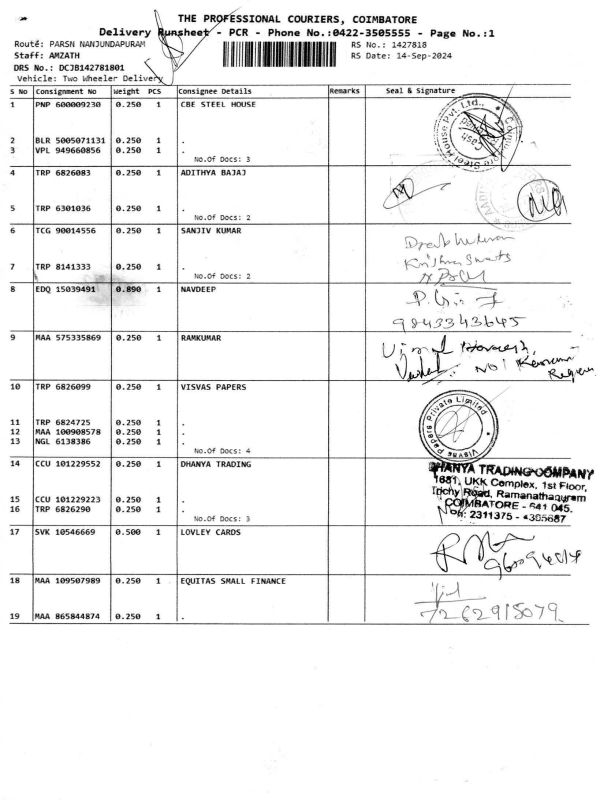 THE PROFESSIONAL COURIERS, COIMBATORE
Delivery Runsheet - PCR - Phone No.:0422-3505555 - Page No.:1
Route: PARSN NANJUNDAPURAM
RS No.: 1427818
Staff: AMZATH
RS Date: 14-Sep-2024
DRS No.: DCJB142781801
Vehicle: Two Wheeler Delivery
S No Consignment No Weight PCS Consignee Details Remarks Seal & Signature
1 PNP 600009230 0.250 1 CBE STEEL HOUSE
2 BLR 5005071131 0.250 1 .
3 VPL 949660856 0.250 1 .
No.Of Docs: 3
4 TRP 6826083 0.250 1 ADITHYA BAJAJ
5 TRP 6301036 0.250 1 .
No.Of Docs: 2
6 TCG 90014556 0.250 1 SANJIV KUMAR
7 TRP 8141333 0.250 1 .
No.Of Docs: 2
8 EDQ 15039491 0.890 1 NAVDEEP
9843343645
9 MAA 575335869 0.250 1 RAMKUMAR
10 TRP 6826099 0.250 1 VISVAS PAPERS
Visvas Papers Private Limited
11 TRP 6824725 0.250 1 .
12 MAA 100908578 0.250 1 .
13 NGL 6138386 0.250 1 .
No.Of Docs: 4
14 CCU 101229552 0.250 1 DHANYA TRADING
DHANYA TRADING COMPANY
1681, UKK Complex, 1st Floor,
Trichy Road, Ramanathapuram
COIMBATORE - 641 045.
15 CCU 101229223 0.250 1 .
16 TRP 6826290 0.250 1 .
: 2311375 - 4305687
No.Of Docs: 3
17 SVK 10546669 0.500 1 LOVLEY CARDS
18 MAA 109507989 0.250 1 EQUITAS SMALL FINANCE
7262915079
19 MAA 865844874 0.250 1 .